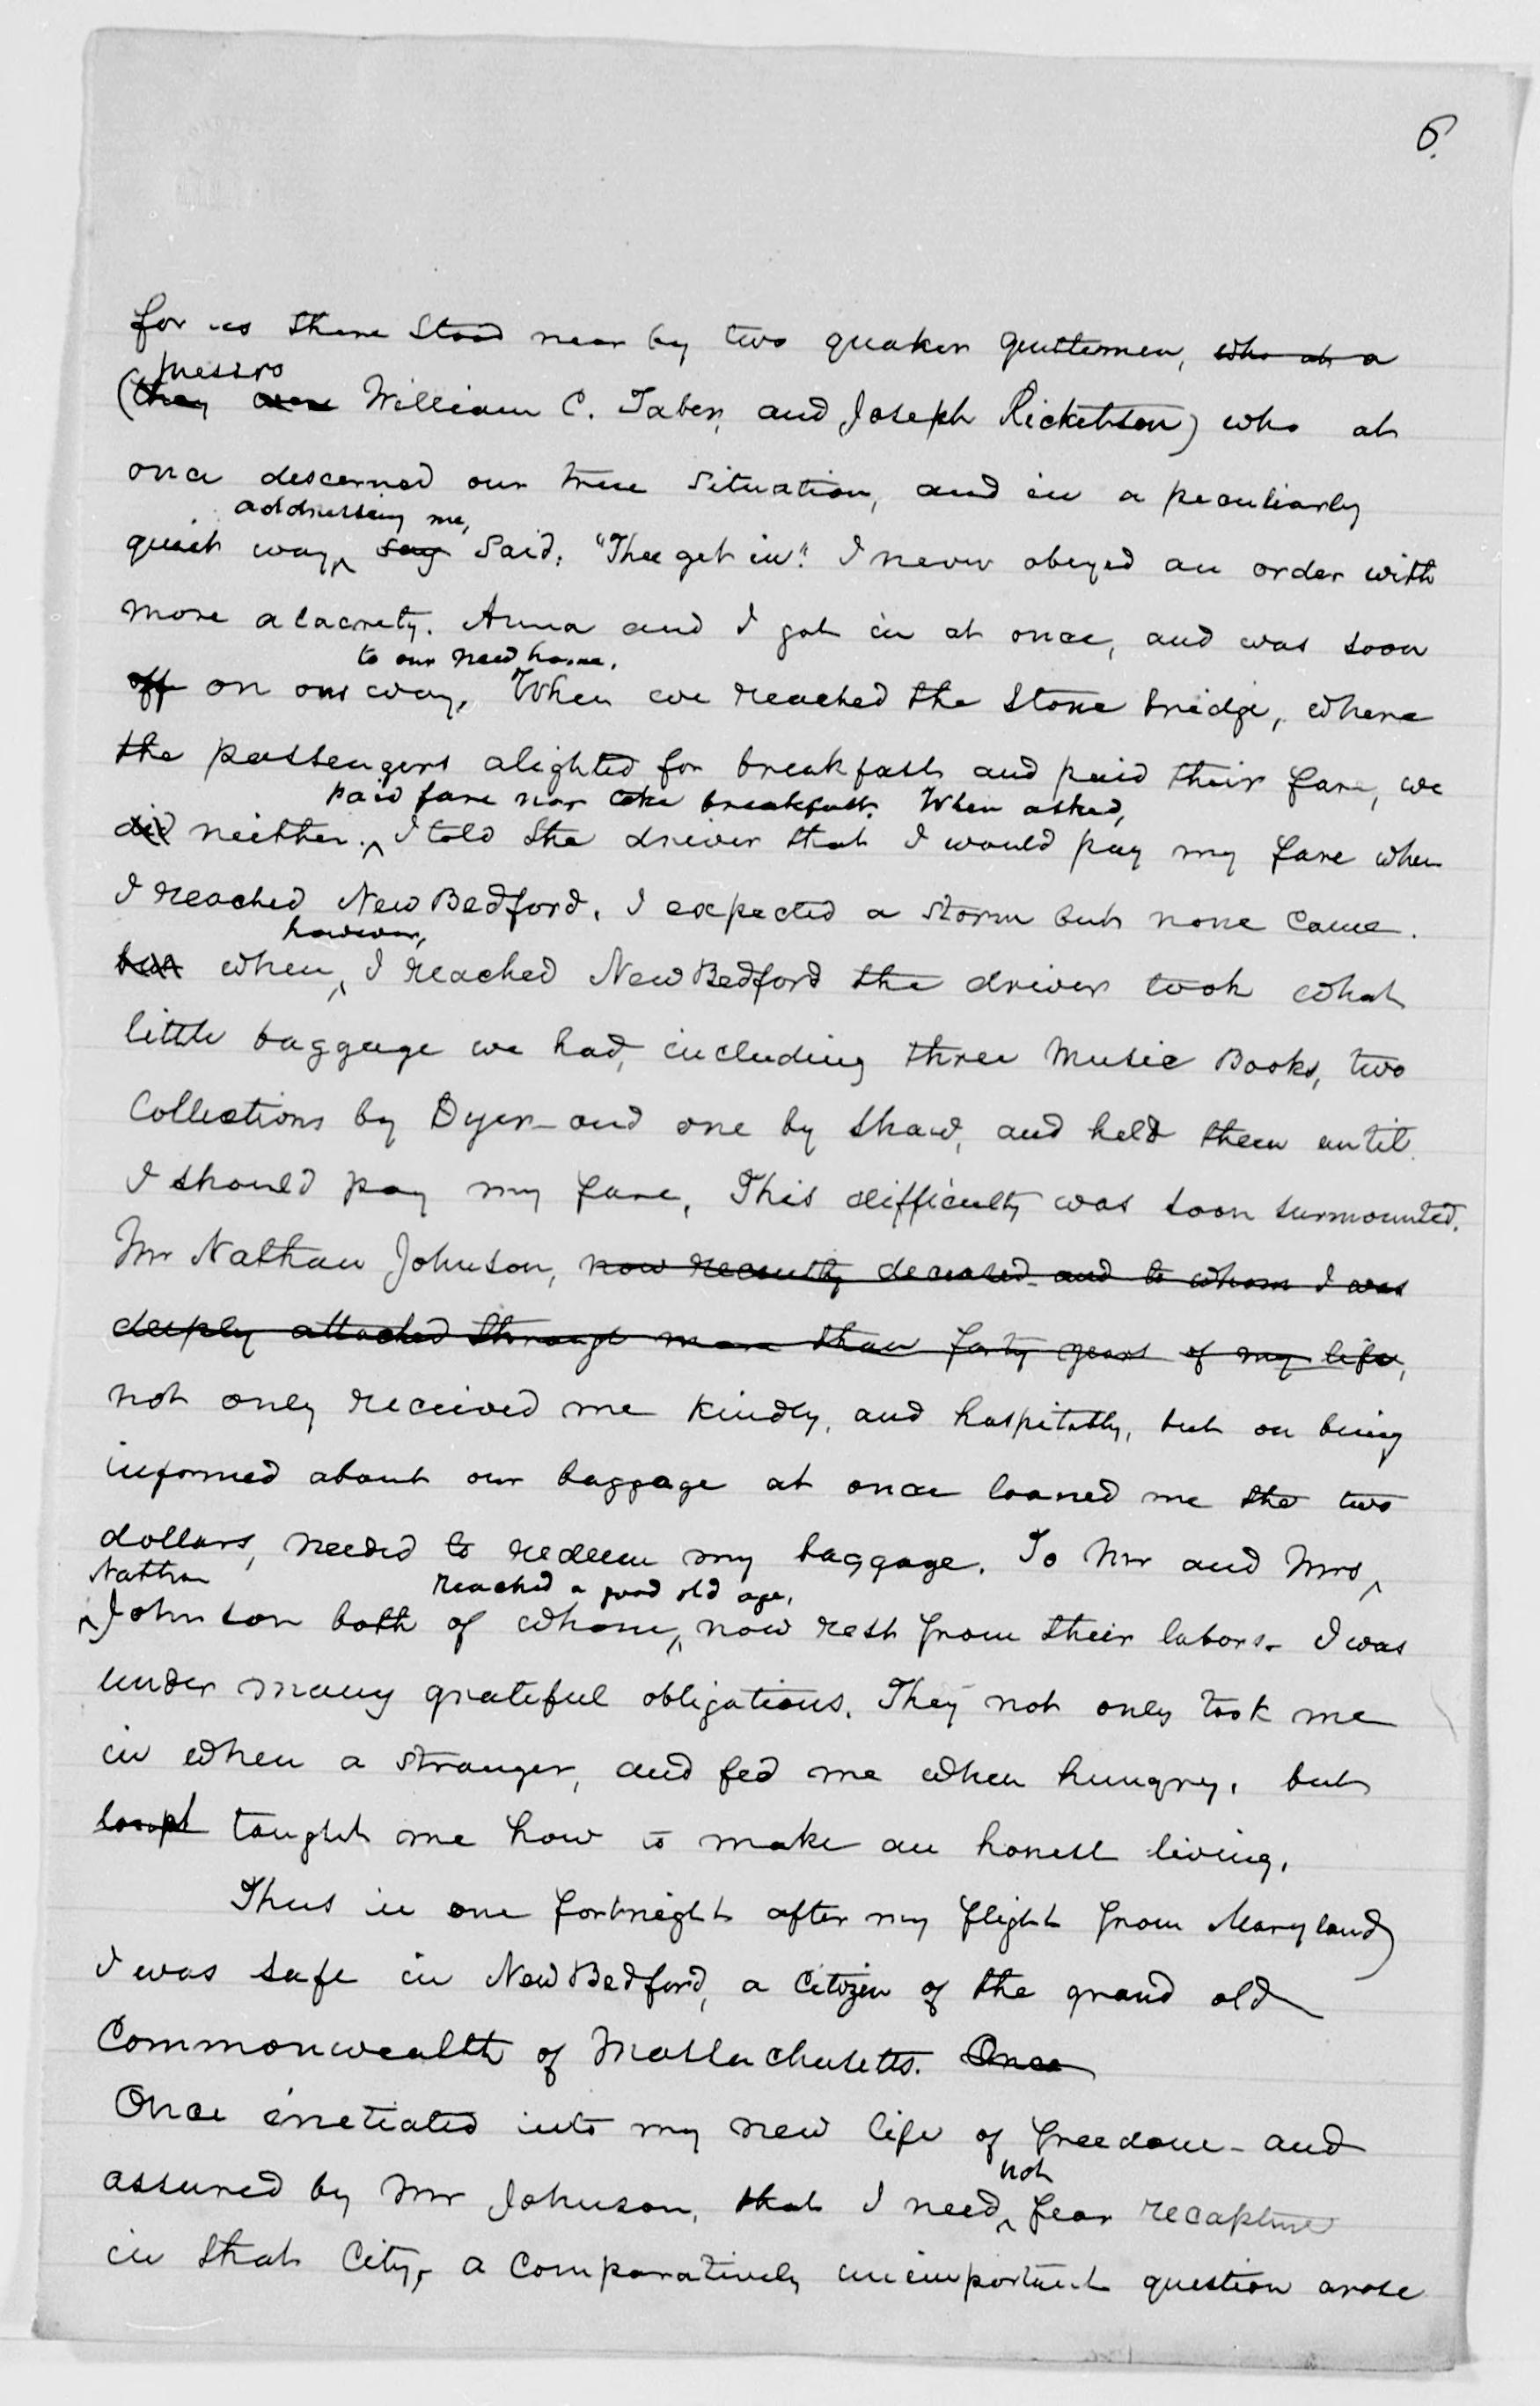 6.
for us there stood near by two quaker gentlemen, who at a
messrs
(they were William C. Taber, and Joseph Ricketson) who at
once descerned our true situation, and in a peculiarly
addressing me,
quiet way, ^ say said. "Thee get in". I never obeyed an order with
more alacrety. Anna and I got in at once, and was soon
to our new home.
off on our way. When we reached the Stone bridge, where
the passengers alighted for breakfast and paid their fare, we
paid fare nor take breakfast. When asked,
did neither. ^ I told the driver that I would pay my fare when
I reached New Bedford. I expected a storm but none came.
however,
but when, ^ I reached New Bedford the driver took what
little baggage we had, including three Music Books, two
Collections by Dyer - and one by Shaw, and held them until
I should pay my fare. This difficulty was soon surmounted.
Mr Nathan Johnson, now recently deceased and to whom I was
deeply attached through more than forty years of my life,
not only received me kindly, and hospitably, but on being
informed about our baggage at once loaned me the two
dollars, needed to redeem my baggage. To Mr and Mrs ^
Nathan
reached a good old age,
^ Johnson both of whom, ^ now rest from their labors - I was
under many grateful obligations. They not only took me
in when a stranger, and fed me when hungry, but
taught me how to make an honest living.
Thus in one fortnight after my flight from Maryland
I was safe in New Bedford, a Citizen of the grand old
Commonwealth of Massachusetts. Once
Once inetiated into my new life of freedom - and
not
assured by Mr Johnson, that I need ^ fear recapture
in that City, a Comparatively unimportant question arose